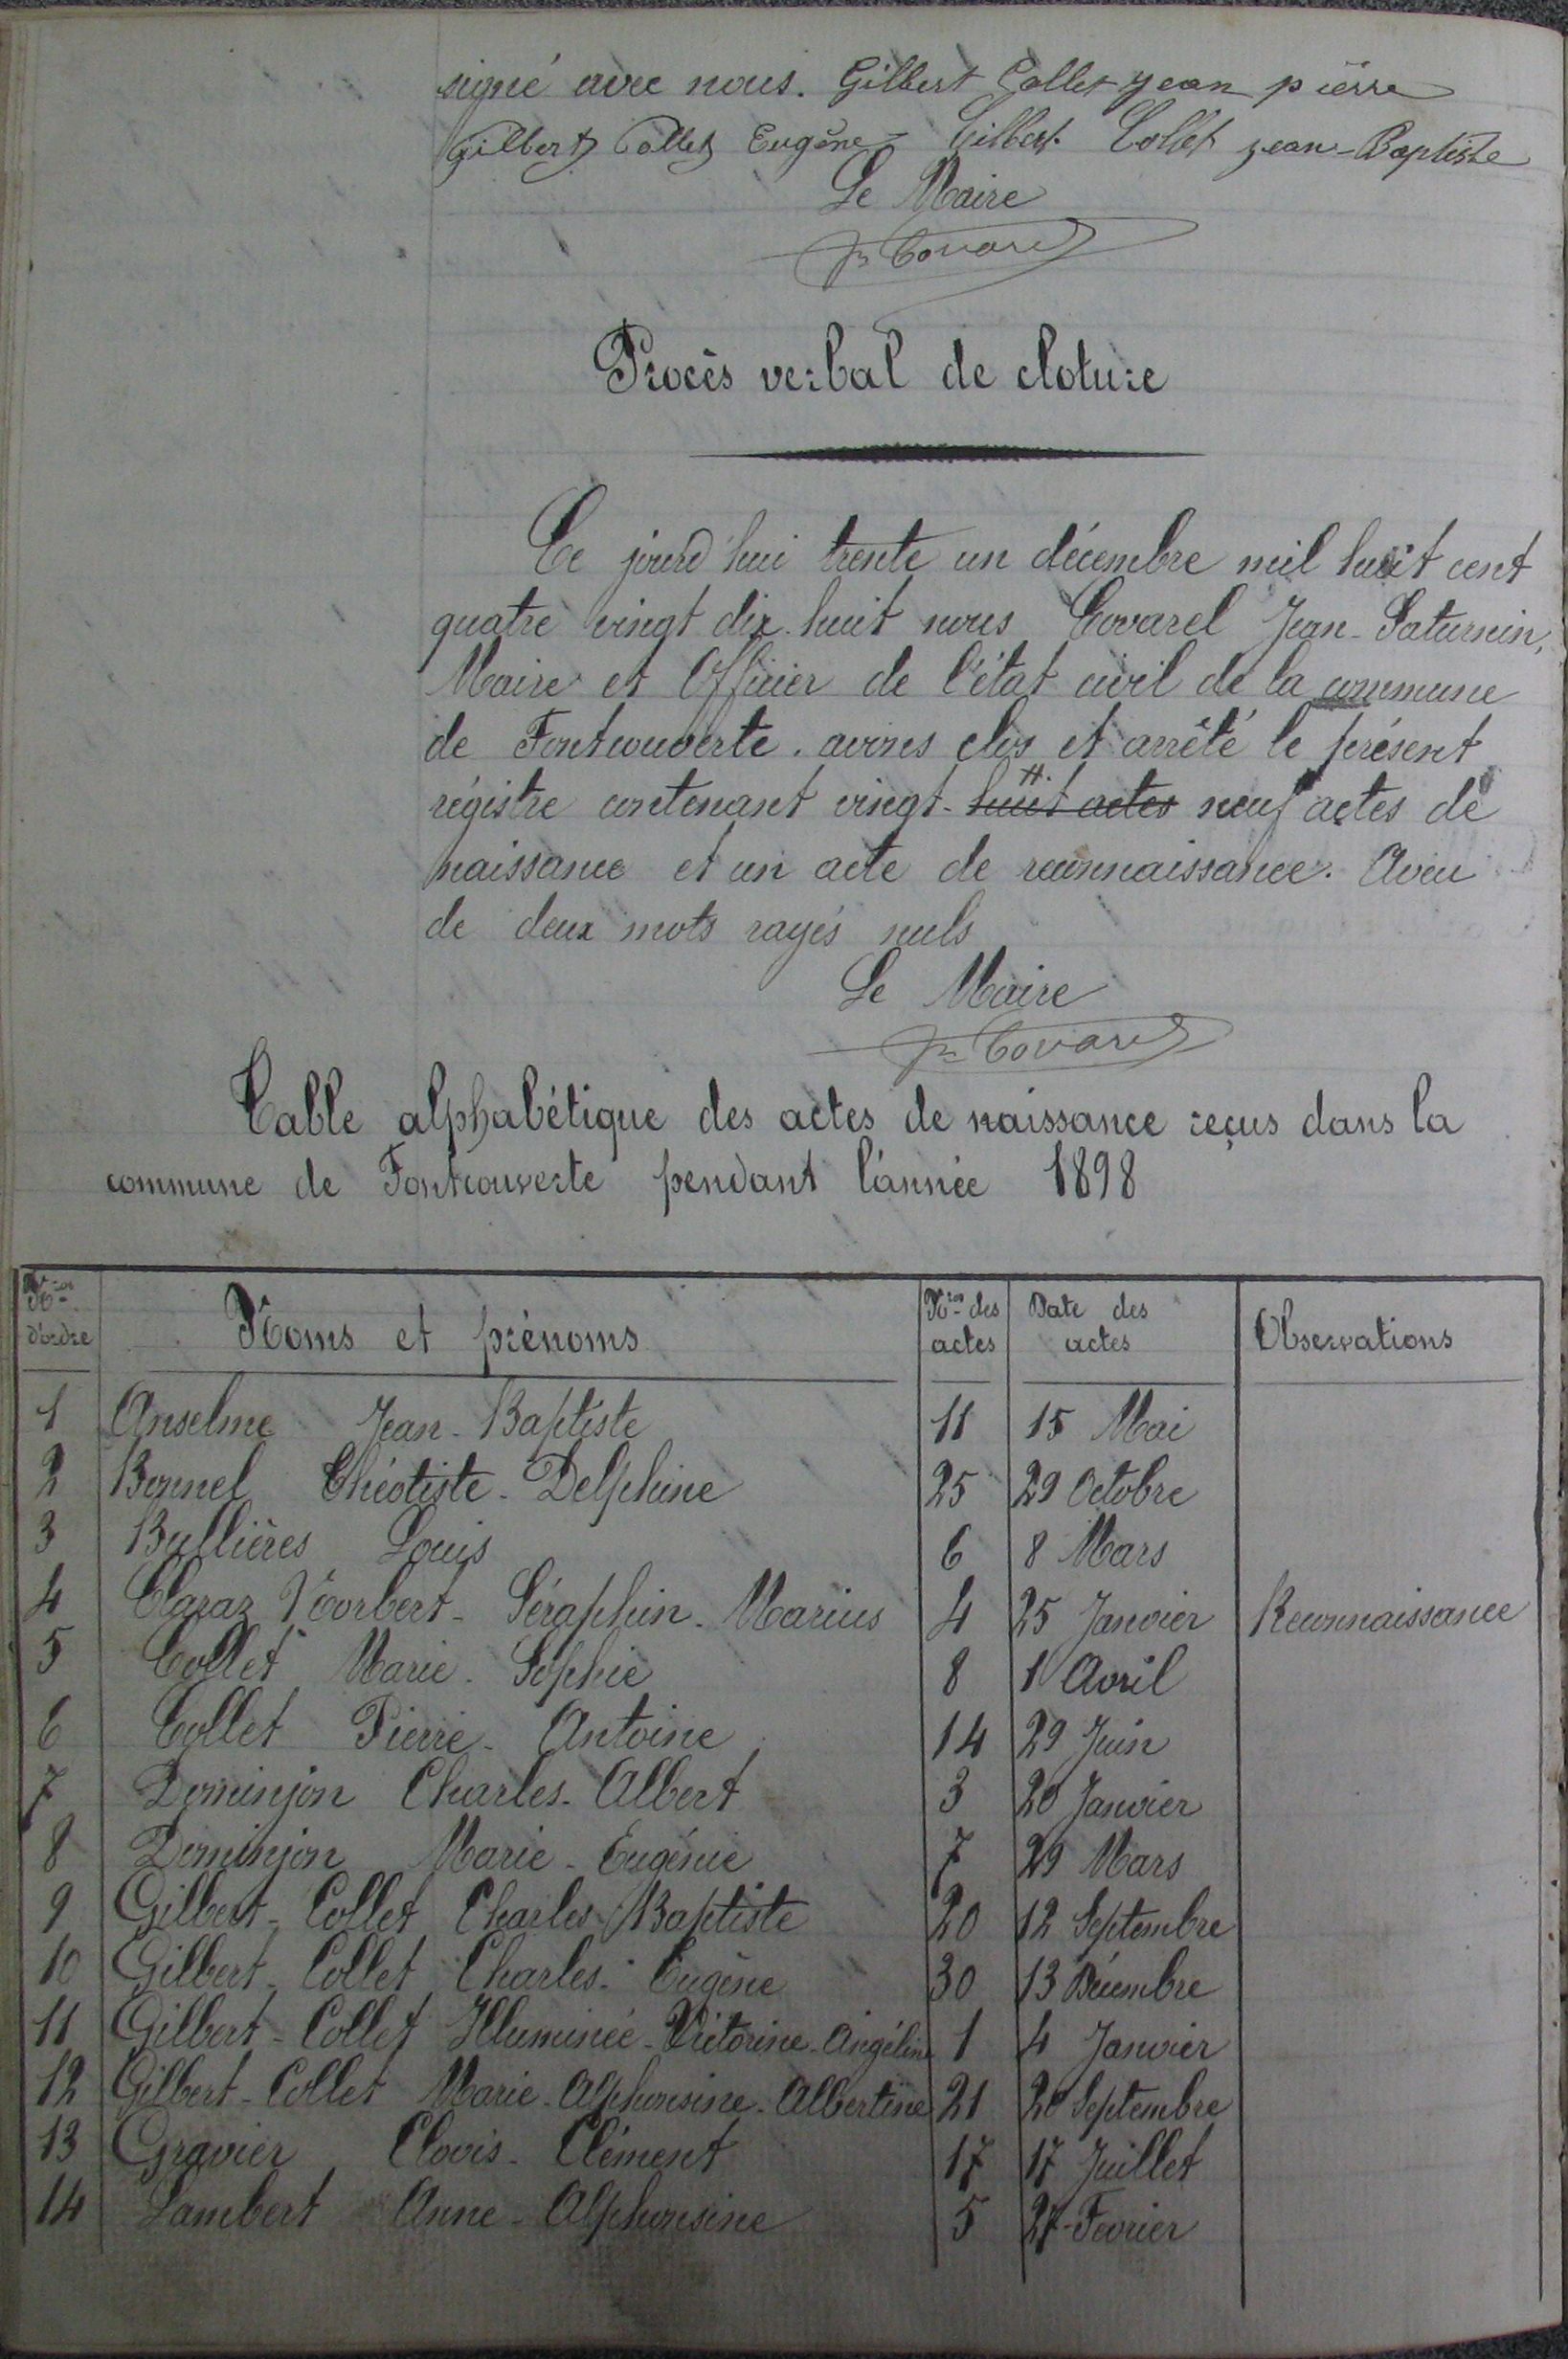 signé avec nous. Gilbert Collet Jean pierre
Gilbert Collet Eugène Gilbert Collet Jean-Baptiste
Le Maire
Jn Covarel
Procès verbal de cloture
Ce jourd'hui trente un décembre mil huit cent
quatre vingt dix-huit nous Covarel Jean-Saturnin,
Maire et Officier de l'état civil de la commune
de Fontcouverte. avons clos et arrêté le présent
régistre contenant vingt-huit actes neuf actes de
naissance et un acte de reconnaissance. Aveu
de deux mots rayés nuls
Le Maire
Jn Covarel
Table alphabétique des actes de naissance reçus dans la
commune de Fontcouverte pendant l'année 1898
Nros d'ordre Noms et prénoms Nros des actes Date des actes Observations
1 Anselme Jean-Baptiste 11 15 Mai
2 Bonnel Théotiste-Delphine 25 29 Octobre
3 Bullières Louis 6 8 Mars
4 Claraz Norbert-Séraphin-Marius 4 25 Janvier Reconnaissance
5 Collet Marie-Sophie 8 1 Avril
6 Collet Pierre-Antoine 14 29 Juin
7 Dominjon Charles-Albert 3 20 Janvier
8 Dominjon Marie-Eugénie 7 29 Mars
9 Gilbert-Collet Charles-Baptiste 20 12 Septembre
10 Gilbert-Collet Charles-Eugène 30 13 Décembre
11 Gilbert-Collet Illuminée-Victorine-Angéline 1 4 Janvier
12 Gilbert-Collet Marie-Alphonsine-Albertine 21 20 Septembre
13 Gravier Clovis-Clément 17 17 Juillet
14 Lambert Anne-Alphonsine 5 27 Fevrier